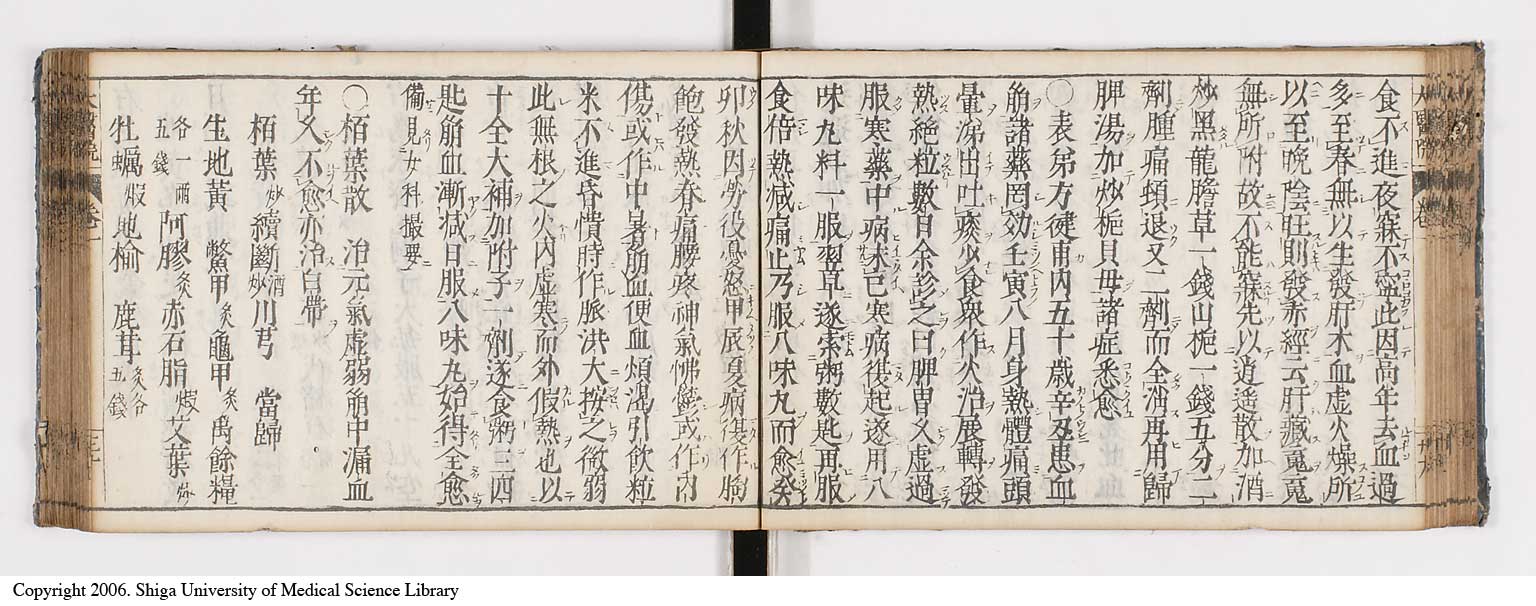 食不進夜寐不寧此因高年去血過
多至春無以生發肝木血虛火燥所
以至晚陰旺則發赤經云肝藏䰟䰟
無所附故不能寐先以逍遙散加酒
炒黑龍膽草一錢山梔一錢五分二
劑腫痛頓退又二劑而全消再用歸
脾湯加炒梔貝母諸症悉愈
〇表弟方健甫內五十歲辛丑患血
崩諸藥罔効壬寅八月身熱體痛頭
暈涕出吐痰少食衆作火治展轉發
熱絕粒數日余診之曰脾胃久虛過
服寒藥中病未已寒病復起遂用八
味丸料一服翌早遂索粥數匙再服
食倍熱減痛止乃服八味丸而愈癸
卯秋因勞役憂怒甲辰夏病復作胸
飽發熱脊痛腰疼神氣怫鬱或作內
傷或作中暑崩血便血煩渴引飲粒
米不進昏憒時作脈洪大按之微弱
此無根之火內虛寒而外假熱也以
十全大補加附子一劑遂食粥三四
匙崩血漸減日服八味丸始得全愈
備見女科撮要
〇栢葉散 治元氣虛弱崩中漏血
年久不愈亦治白帶
栢葉炒續斷酒炒川芎 當歸
生地黃 鱉甲炙龜甲炙禹餘糧
各一兩五錢阿膠炙赤石脂煅艾葉炒
牡蠣煅地榆 鹿茸炙各五錢
Copyright 2006. Shiga University of Medical Science Library